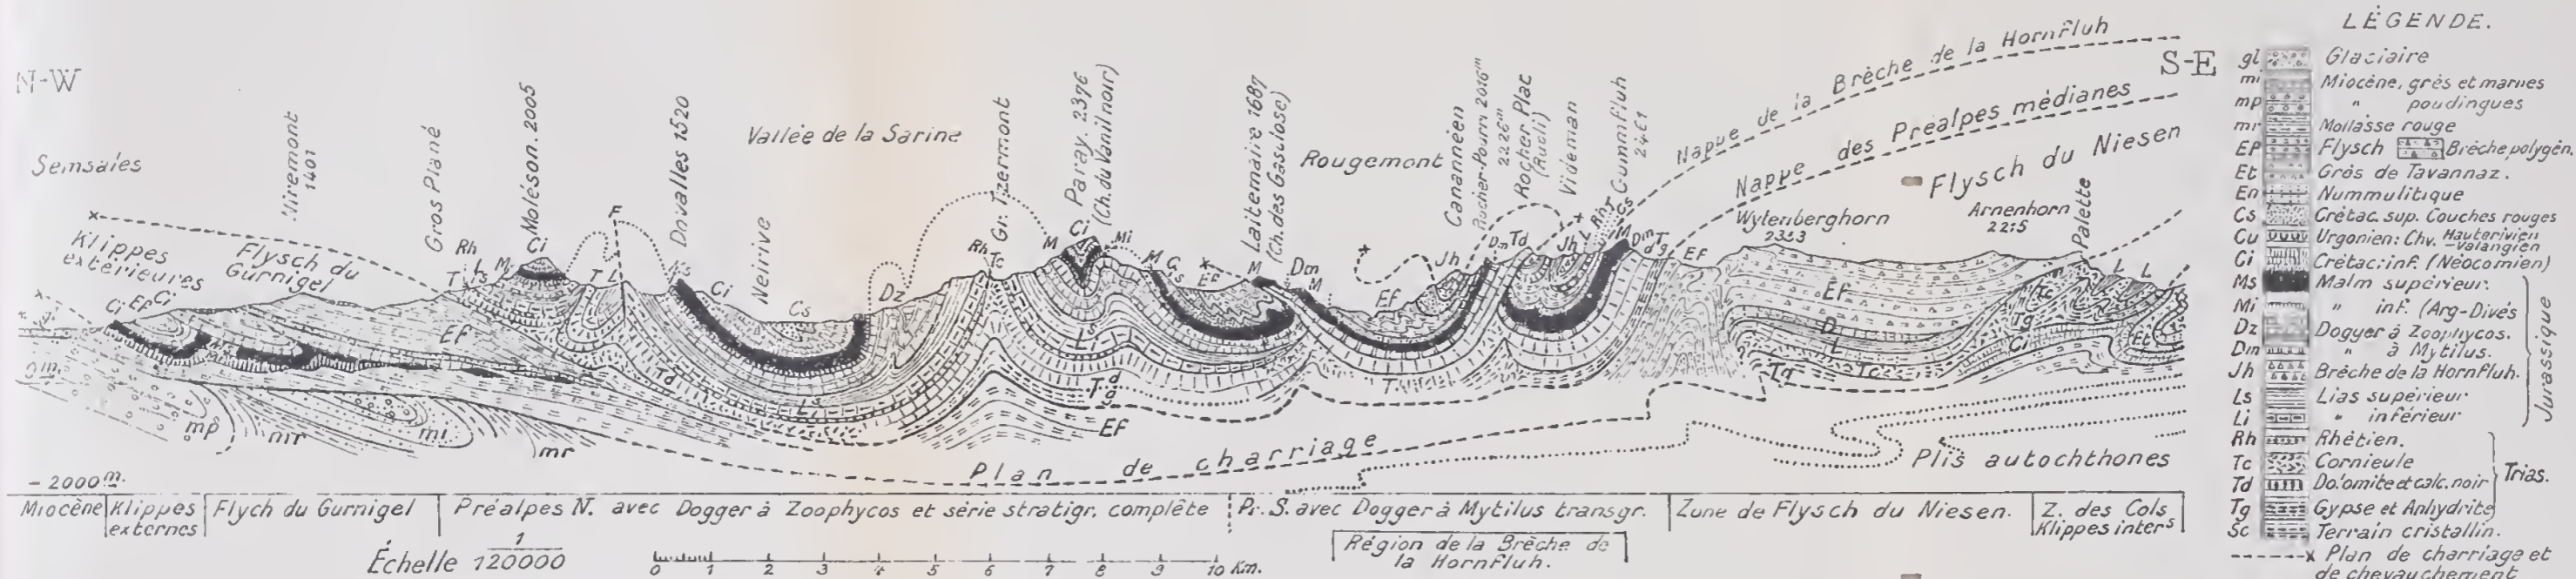 N-W
S-E
Semsales
Niremont
1401
Gros Plané
Moléson. 2005
Dsvalles 1520
Vallée de la Sarine
Neirive
Gr. Tzermont
Paray. 2376
(Ch. du Vanil noir)
Laitemaire 1687
(Ch. des Gastlose)
Rougemont
Canannéen
Rocher-Pourri 2016m
2226m
Rocher Plac
(Rubli)
Videman
Gummfluh
2461
Nappe de la Brèche de la Hornfluh
Nappe des Préalpes médianes
Flysch du Niesen
Wytenberghorn
2353
Arnenhorn
22:5
Palette
Klippes
extérieures
Flysch du
Gurnigel
Ci Ef Ci
Ef
Rh
T
L
Ls
M
Ci
T L
F
Ms
Ci
Cs
Dz
Rh
Tc
M
Ci
Mi
M
Cs
Ef
M
Dm
M
Ef
Jh
Dm Td
Jh
L
Rh T
Cs
M
Dm Tg
Ef
Ef
Tc
Tg
Ci
L L
Et
D
L
Tc
Tg
Td
Li
Ls
T
T
Ef
0 m.
mp
mr
mi
mr
Plan de charriage
Plis autochthones
- 2000 m.
Miocène
Klippes
externes
Flych du Gurnigel
Préalpes N. avec Dogger à Zoophycos et série stratigr. complète
Pr. S. avec Dogger à Mytilus transgr.
Zone de Flysch du Niesen.
Z. des Cols
Klippes inters
Région de la Brèche de
la Hornfluh.
Échelle 1/120000
0 1 2 3 4 5 6 7 8 9 10 Km.
LÉGENDE.
gl Glaciaire
mi Miocène, grès et marnes
mp " poudingues
mr Mollasse rouge
Ef Flysch Brèche polygén.
Et Grès de Tavannaz.
En Nummulitique
Cs Crétac. sup. Couches rouges
Cu Urgonien: Chv. Hauterivien
-Valangien
Ci Crétac. inf. (Néocomien)
Ms Malm supérieur.
Mi " inf. (Arg-Divés
Dz Dogger à Zoophycos.
Dm " à Mytilus.
Jh Brèche de la Hornfluh.
Ls Lias supérieur
Li " inférieur
Jurassique
Rh Rhétien.
Tc Cornieule
Td Dolomite et calc. noir
Tg Gypse et Anhydrite
Trias.
Sc Terrain cristallin.
Plan de charriage et
de chevauchement